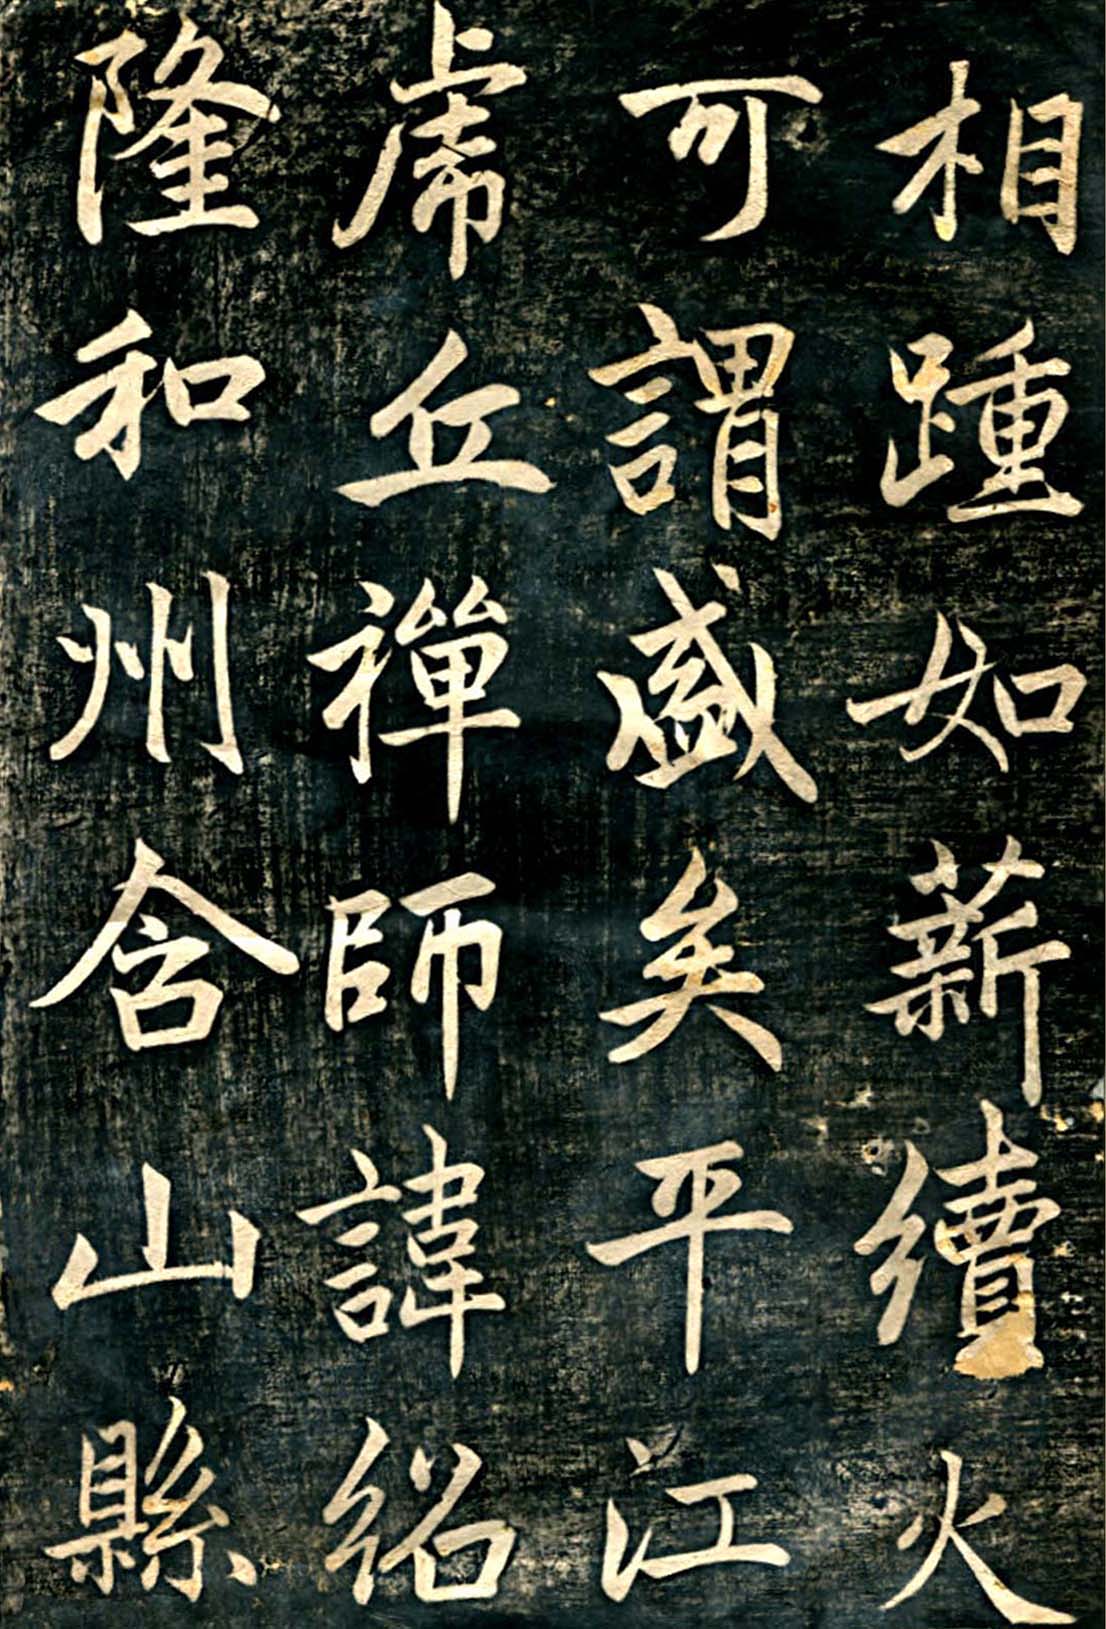 相踵如薪續火
可謂盛矣平江
虎丘禪師諱紹
隆和州含山縣